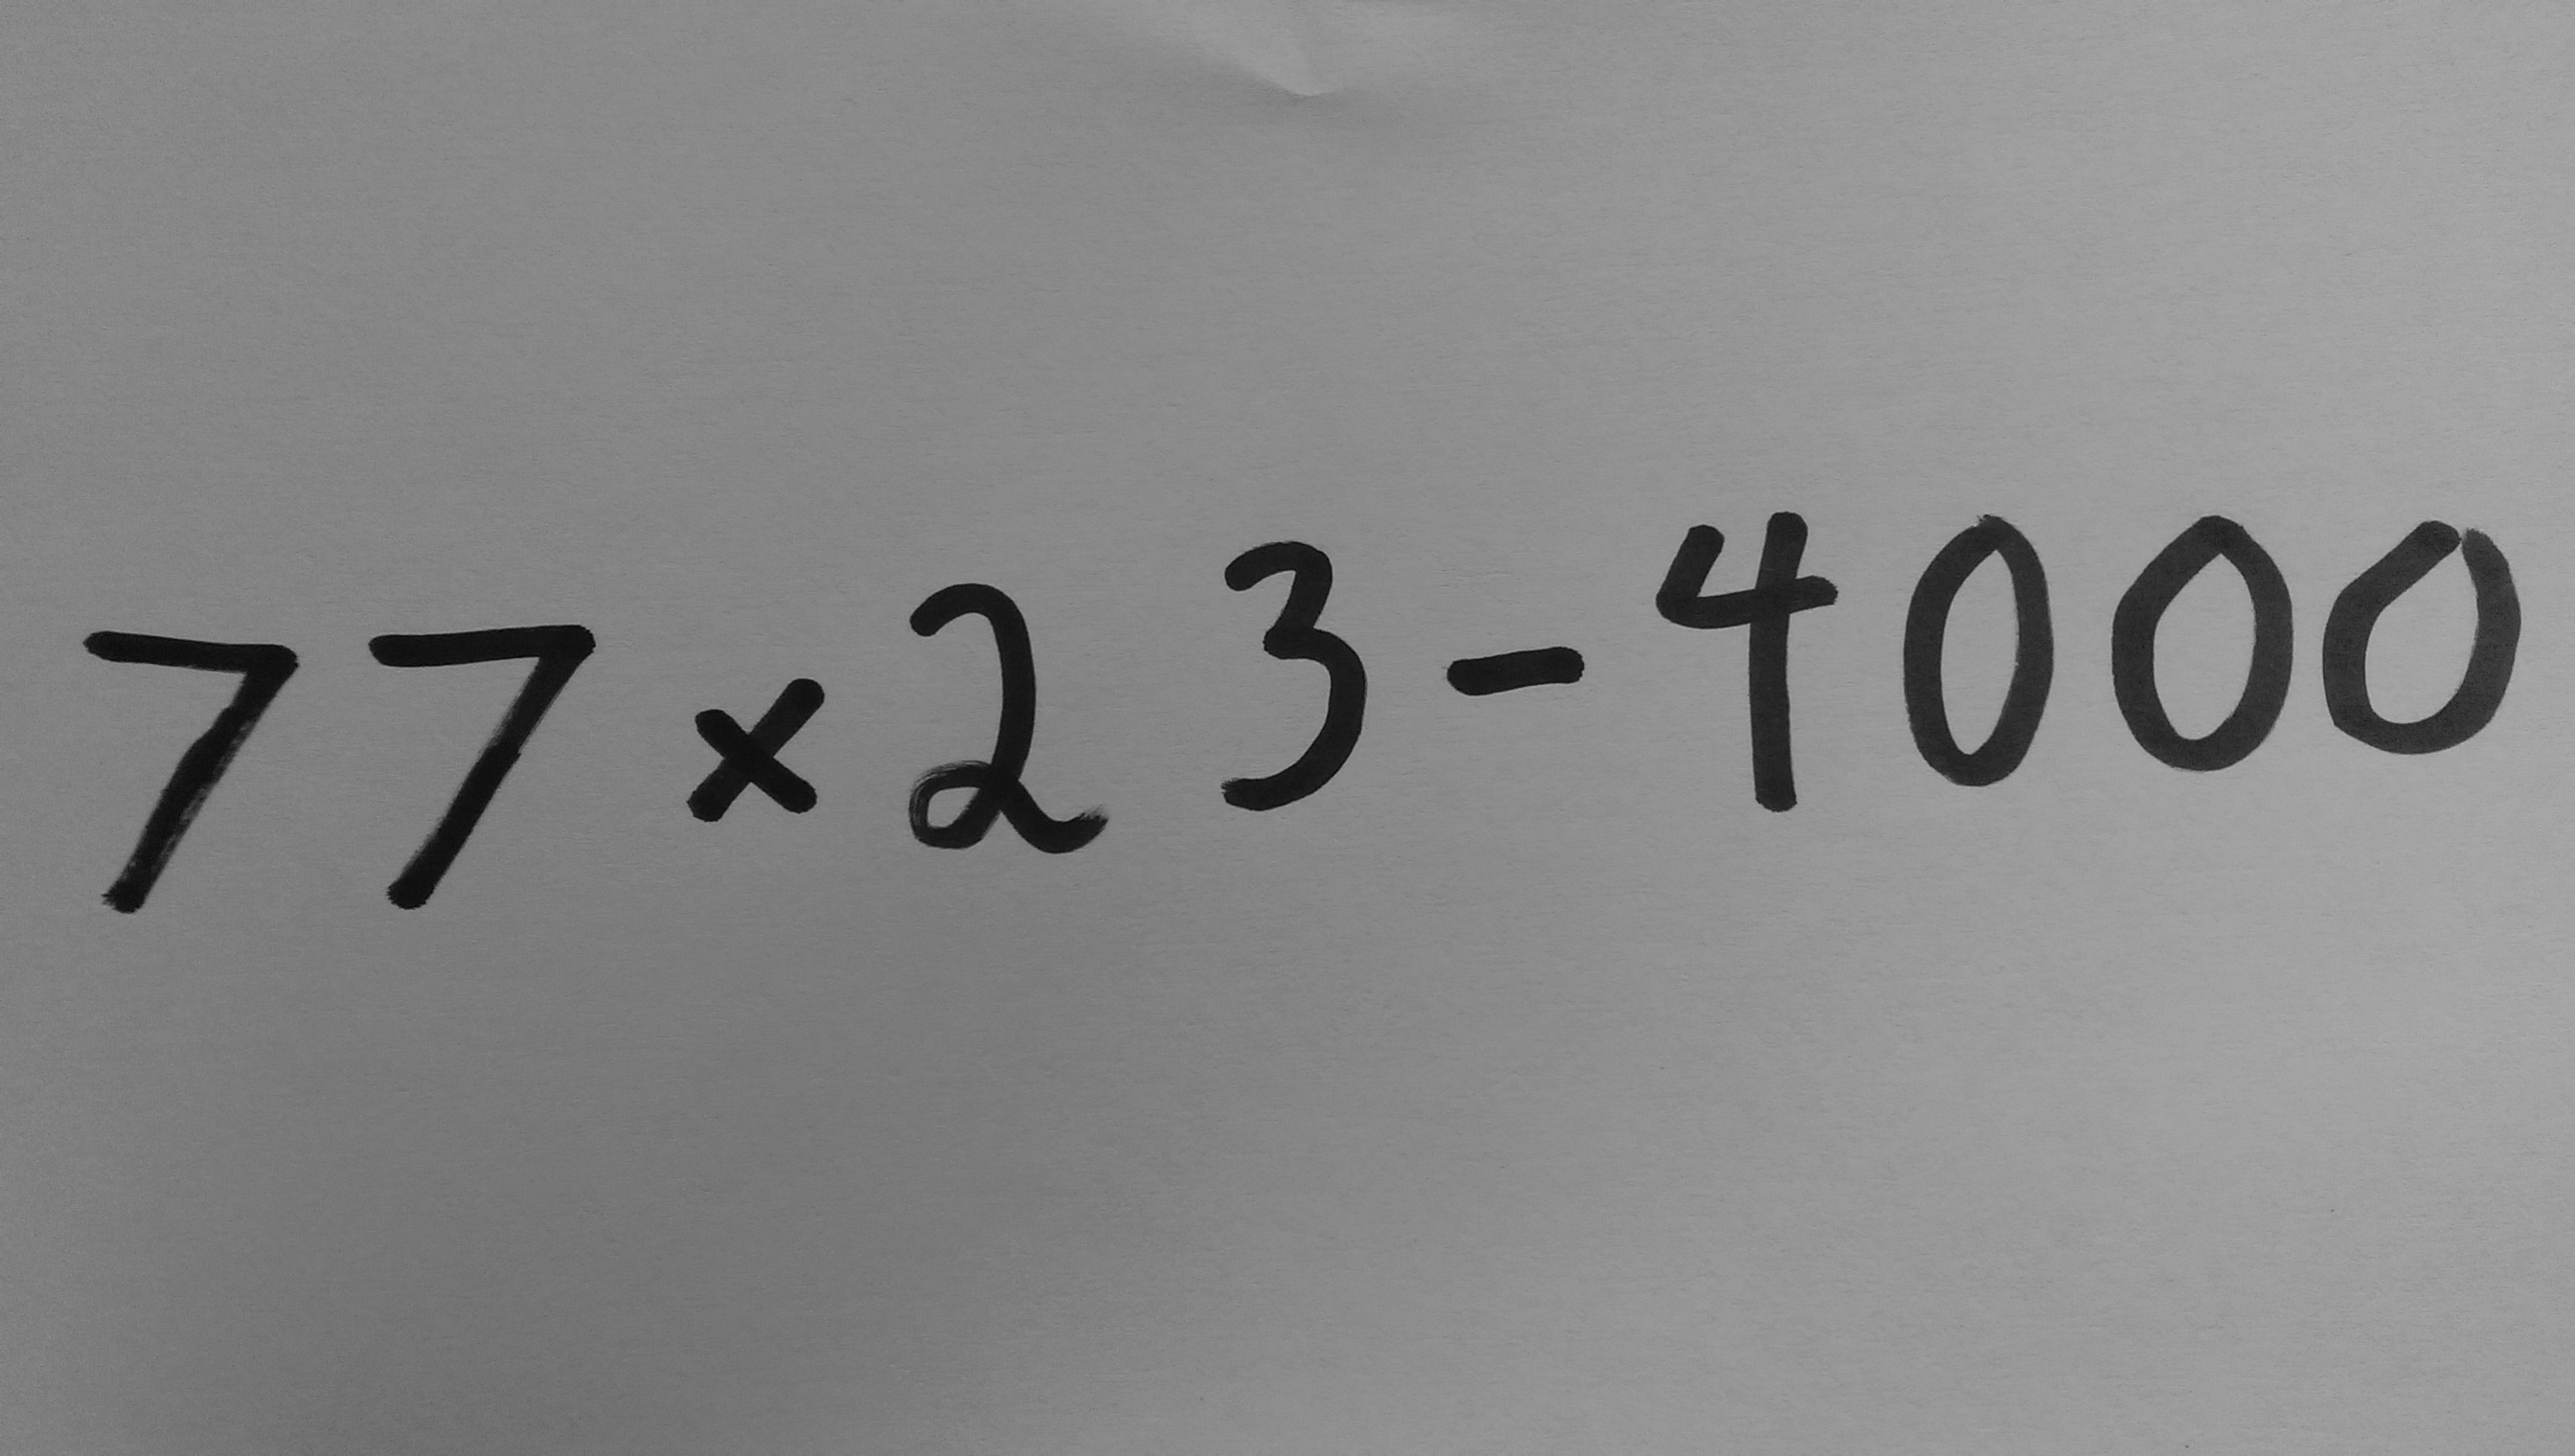 77×23-4000